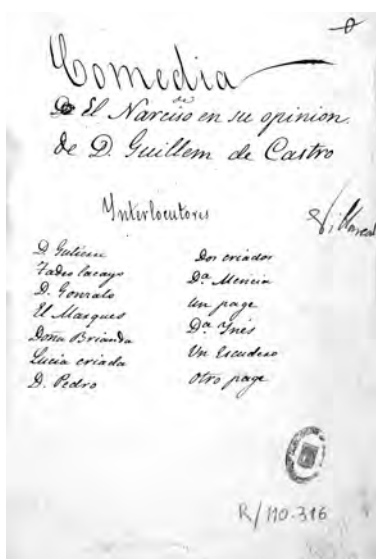 Comedia
de
El Narciso en su opinion.
de D. Guillem de Castro
Interlocutores
D. Gutierre
Tadeo lacayo
D. Gonzalo
El Marques
Doña Brianda
Lucia criada
D. Pedro
Dos criados
Dª. Mencia
un page
Dª. Ynes
Un Escudero
Otro page
R/110-316